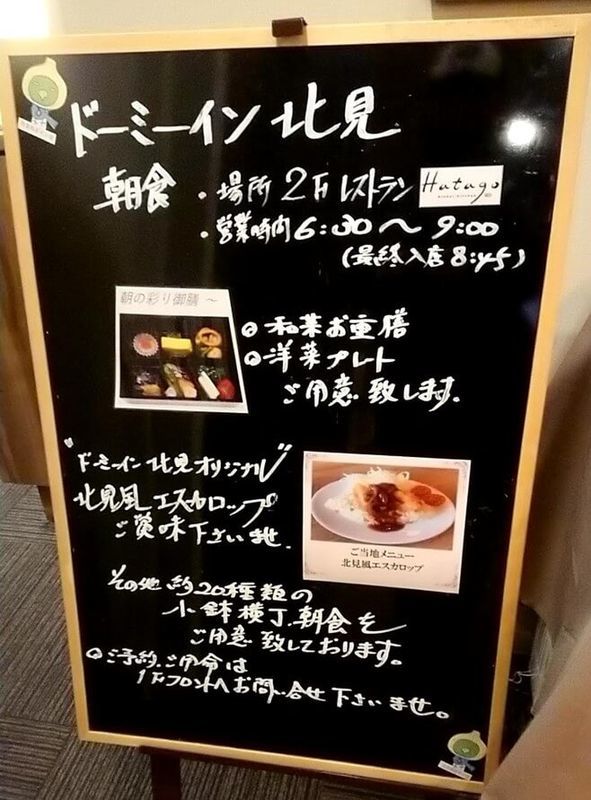 ドーミーイン 北見
朝食 ・場所 2F レストラン Hatago
・営業時間 6:30～9:00
(最終入店 8:45)
朝の彩り御膳 ～
◎ 和菜お重膳
◎ 洋菜プレート
ご用意致します。
"ドーミーイン 北見オリジナル"
北見風 エスカロップ
ご賞味下さいませ.
ご当地メニュー
北見風エスカロップ
その他 約20種類の
小鉢横丁朝食を
ご用意致しております。
◎ ご予約、ご用命は
1Fフロントへお問い合せ下さいませ。